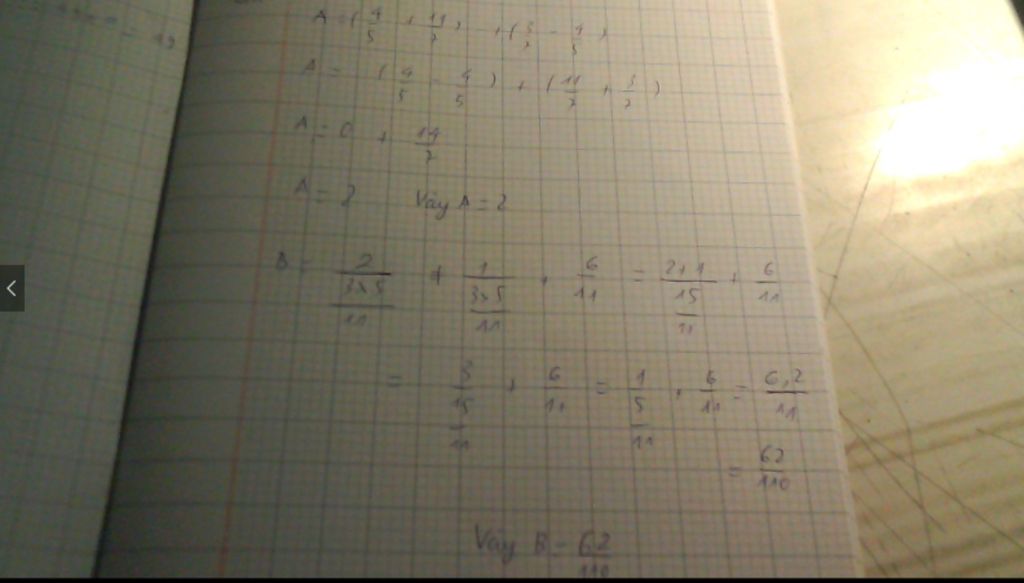 A = ( 4/5 + 11/7 ) + ( 3/7 - 4/5 )
A = ( 4/5 - 4/5 ) + ( 11/7 + 3/7 )
A = 0 + 14/7
A = 2 Vậy A = 2
B = 2/3x5/11 + 1/3x5/11 + 6/11 = 2+1/15/11 + 6/11
= 3/15/11 + 6/11 = 1/5/11 + 6/11 = 6,2/11
= 62/110
Vậy B = 62/110